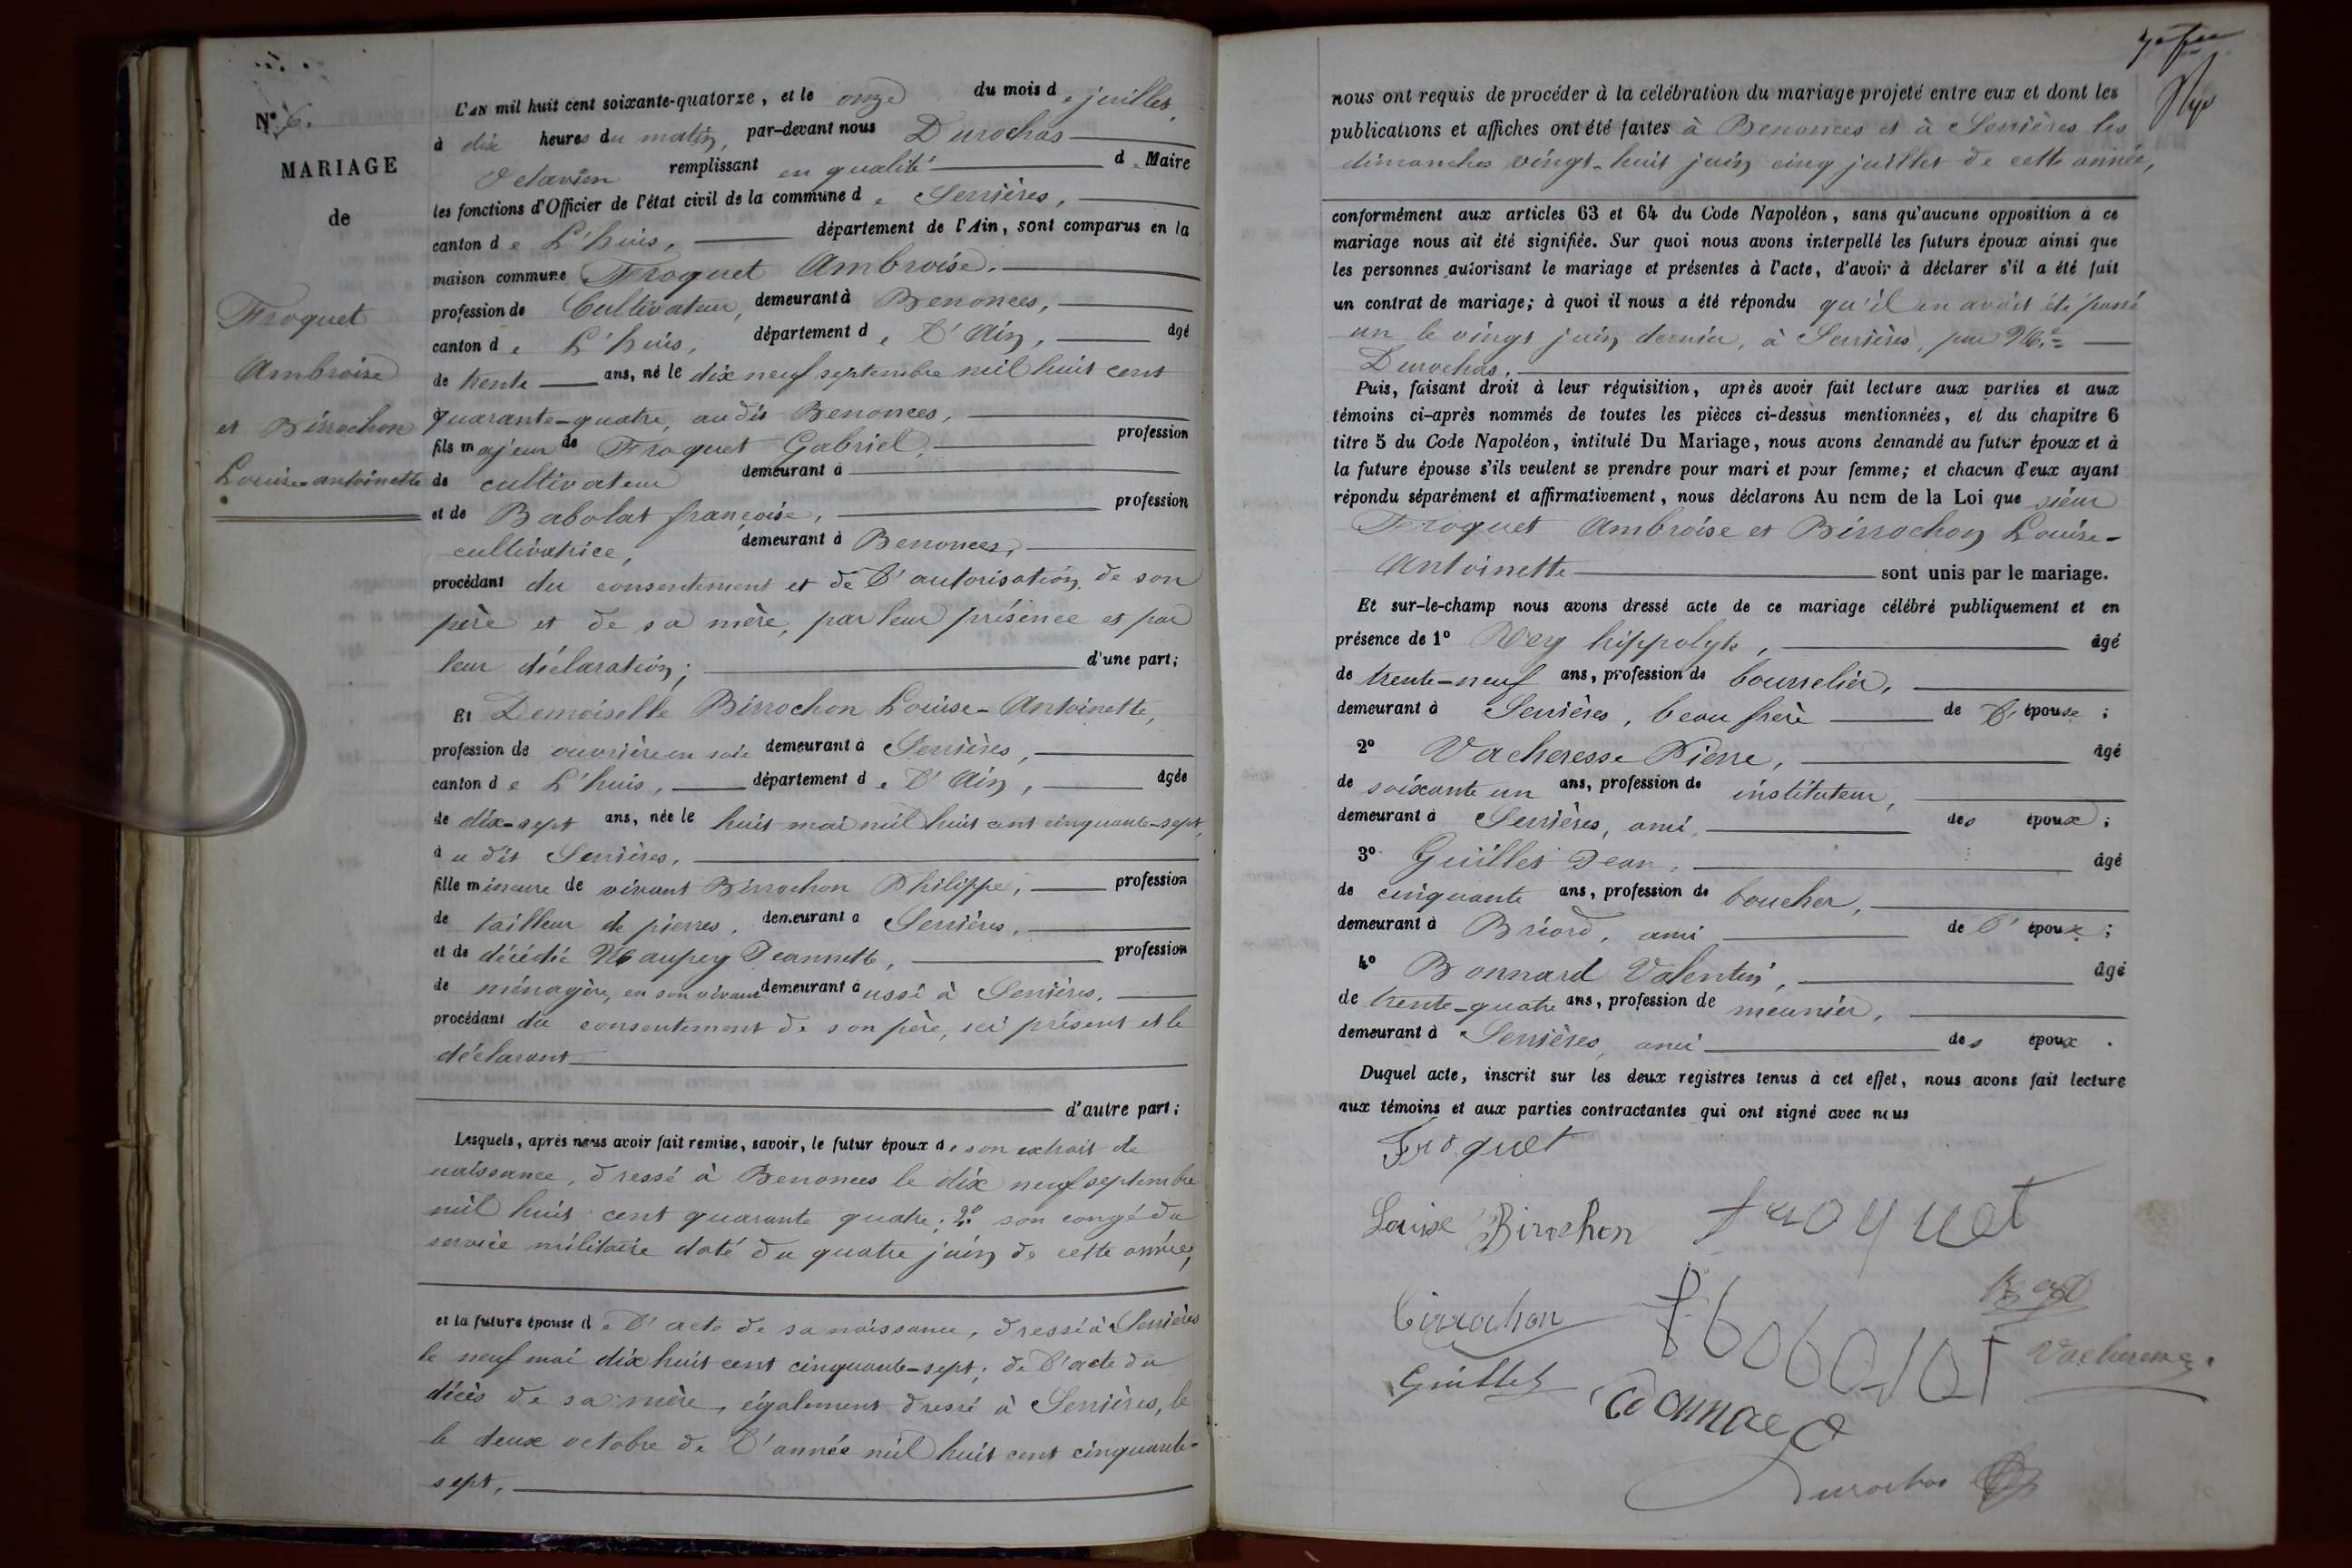 N° 6.
MARIAGE
de
Froquet
Ambroise
et Birrochon
Louise-antoinette
L'AN mil huit cent soixante-quatorze, et le onze du mois de juillet,
à dix heures du matin, par-devant nous Durochas
Octavien remplissant en qualité de Maire
les fonctions d'Officier de l'état civil de la commune de Serrières,
canton de L'huis, département de l'Ain, sont comparus en la
maison commune Froquet Ambroise.
profession de Cultivateur, demeurant à Benonces,
canton de L'huis, département de L'Ain, âgé
de trente ans, né le dix neuf septembre mil huit cent
quarante-quatre, audit Benonces,
fils majeur de Froquet Gabriel, profession
de cultivateur demeurant à
et de Babolat françoise, profession
cultivatrice, demeurant à Benonces,
procédant du consentement et de l'autorisation de son
père et de sa mère, par leur présence et par
leur déclaration; d'une part;
Et Demoiselle Birrochon Louise-Antoinette,
profession de ouvrière en soie demeurant à Serrières,
canton de L'huis, département de L'Ain, âgée
de dix-sept ans, née le huit mai mil huit cent cinquante-sept,
audit Serrières,
fille mineure de vivant Birrochon Philippe, profession
de tailleur de pierres, demeurant à Serrières,
et de décédée Maupey Jeannette, profession
de ménagère, en son vivant demeurant aussi à Serrières.
procédant du consentement de son père, ici présent et le
déclarant
d'autre part;
Lesquels, après nous avoir fait remise, savoir, le futur époux de son extrait de
naissance, dressé à Benonces le dix neuf septembre
mil huit cent quarante quatre; 2° son congé du
service militaire daté du quatre juin de cette année,
et la future épouse de l'acte de sa naissance, dressé à Serrières
le neuf mai dix huit cent cinquante-sept; de l'acte du
décès de sa mère, également dressé à Serrières, le
le deux octobre de l'année mil huit cent cinquante-
sept,
nous ont requis de procéder à la célébration du mariage projeté entre eux et dont les
publications et affiches ont été faites à Benonces et à Serrières les
dimanches vingt-huit juin cinq juillet de cette année,
conformément aux articles 63 et 64 du Code Napoléon, sans qu'aucune opposition à ce
mariage nous ait été signifiée. Sur quoi nous avons interpellé les futurs époux ainsi que
les personnes autorisant le mariage et présentes à l'acte, d'avoir à déclarer s'il a été fait
un contrat de mariage; à quoi il nous a été répondu qu'il en avait été passé
un le vingt juin dernier, à Serrières, par Me
Durochas.
Puis, faisant droit à leur réquisition, après avoir fait lecture aux parties et aux
témoins ci-après nommés de toutes les pièces ci-dessus mentionnées, et du chapitre 6
titre 5 du Code Napoléon, intitulé Du Mariage, nous avons demandé au futur époux et à
la future épouse s'ils veulent se prendre pour mari et pour femme; et chacun d'eux ayant
répondu séparément et affirmativement, nous déclarons Au nom de la Loi que sieur
Froquet Ambroise et Birrochon Louise-
Antoinette sont unis par le mariage.
Et sur-le-champ nous avons dressé acte de ce mariage célébré publiquement et en
présence de 1° Rey hippolyte, âgé
de trente-neuf ans, profession de bourrelier,
demeurant à Serrières, beau frère de l'épouse;
2° Vacheresse Pierre, âgé
de soixante un ans, profession de instituteur,
demeurant à Serrières, ami des époux;
3° Guillet Jean, âgé
de cinquante ans, profession de boucher,
demeurant à Briord, ami de l'époux;
4° Bonnard Valentin, âgé
de trente-quatre ans, profession de meunier,
demeurant à Serrières, ami des époux.
Duquel acte, inscrit sur les deux registres tenus à cet effet, nous avons fait lecture
aux témoins et aux parties contractantes qui ont signé avec nous
Froquet
Louise Birochon froquet
Birrochon
fbobolat Vacheresse
Guillet
Bonnard
Durochas